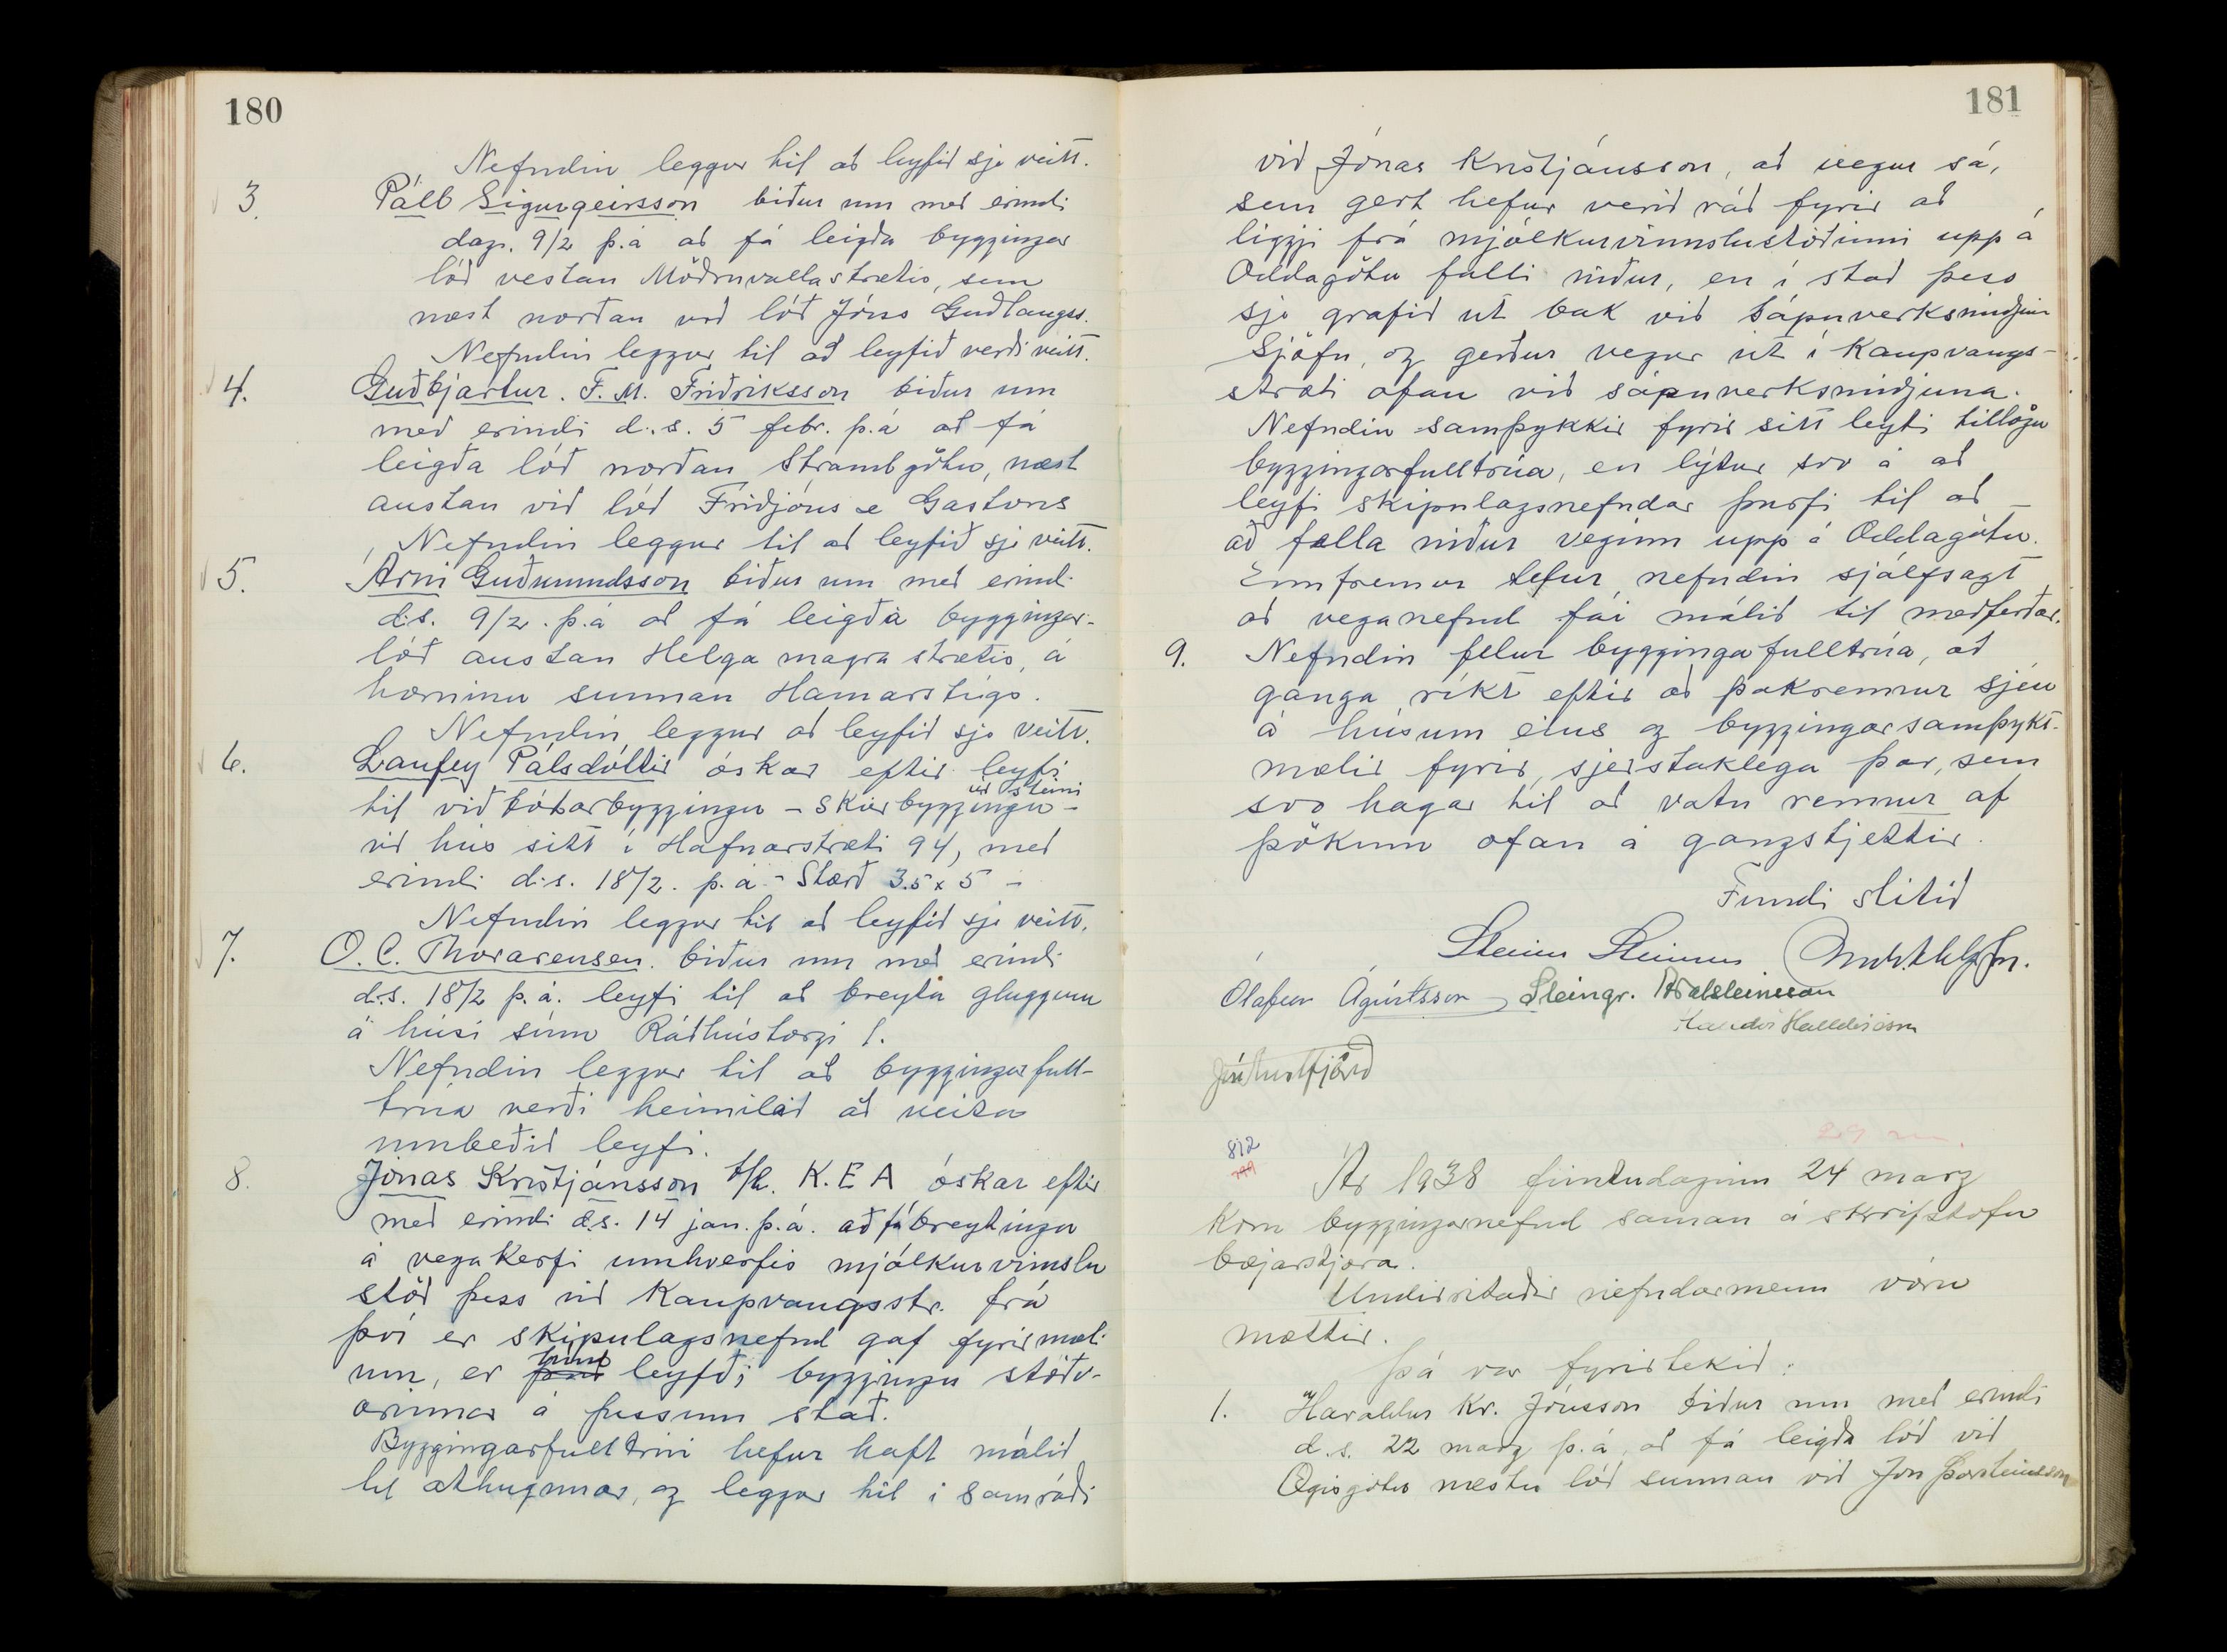 180
Nefndin leggur til að leyfið sje veitt.
3. Páll Sigurgeirsson biður um með erindi
dags. 9/2 þ.á að fá leigða byggingar
lóð vestan Möðruvallastrætis, sem
næst norðan við lóð Jóns Guðlaugss.
Nefndin leggur til að leyfið verði veitt.
4. Guðbjartur. F. M. Friðriksson biður um
með erindi d.s. 5 febr. þ.á að fá
leigða lóð norðan Strandgötu, næst
austan við lóð Friðjóns & Gastons
Nefndin leggur til að leyfið sje veitt.
5. Árni Guðmundsson biður um með erindi
d.s. 9/2. þ.á að fá leigða byggingar-
lóð austan Helga magra strætis, á
horninu sunnan Hamarstígs.
Nefndin leggur að leyfið sje veitt.
6. Laufey Pálsdóttir óskar eftir leyfi
til viðbótarbyggingu - skúrbyggingu úr steini -
við hús sitt í Hafnarstræti 94, með
erindi d.s. 18/2. þ.á - Stærð 3.5 x 5 -
Nefndin leggur til að leyfið sje veitt.
7. O. C. Thorarensen. biður um með erindi
d.s. 18/2 þ.á. leyfi til að breyta gluggum
á húsi sínu Ráðhústorgi 1.
Nefndin leggur til að byggingarfull-
trúa verði heimilað að veita
umbeðið leyfi.
8. Jónas Kristjánsson f/h. K.E A óskar eftir
með erindi d.s. 14 jan. þ.á. að fá breytingu
á vegakerfi umhverfis mjólkurvinslu
stöð þess við Kaupvangsstr. frá
því er skipulagsnefnd gaf fyrirmæli
um, er hún leyfði byggingu stöðv-
arinnar á þessum stað.
Byggingarfulltrúi hefur haft málið
til athugunar, og leggur til í samráði
181
við Jónas Kristjánsson, að vegur sá,
sem gert hefur verið ráð fyrir að
liggji frá mjólkurvinnslustöðinni upp á
Oddagötu falli niður, en í stað þess
sje grafið út bak við sápuverksmiðjuna
Sjöfn, og gerður vegur út í Kaupvangs-
stræti ofan við sápuverksmiðjuna.
Nefndin samþykkir fyrir sitt leyti tillögu
byggingarfulltrúa, en lýtur svo á að
leyfi skipulagsnefndar þurfi til að
að fella niður veginn upp á Oddagötu.
Ennfremur telur nefndin sjálfsagt
að veganefnd fái málið til meðferðar.
9. Nefndin felur byggingafulltrúa, að
ganga ríkt eftir að þakrennur sjeu
á húsum eins og byggingarsamþykt.
mælir fyrir, sjerstaklega þar, sem
svo hagar til að vatn rennur af
þökum ofan á gangstjettir.
Fundi slitið
Steinn Steinsen
Ólafur Ágústsson Steingr. Aðalsteinsson
Halldór Halldórsson
812
Ár 1938 fimtudaginn 24 marz
kom byggingarnefnd saman á skrifstofu
bæjarstjóra.
Undirritaðir nefndarmenn vóru
mættir.
Þá var fyrirtekið:
1. Haraldur Kr. Jónsson biður um með erindi
d.s. 22 marz þ.á, að fá leigða lóð við
Ægisgötu næstu lóð sunnan við Jón Þorsteinsson